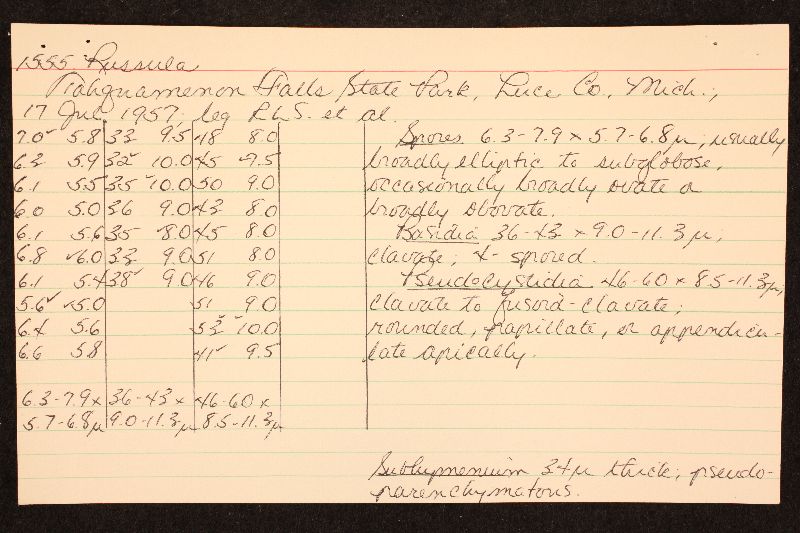 1555. Russula
Tahquamenon Falls State Park, Luce Co., Mich.,
17 Jul 1957; leg R.L.S. et al.
7.0 5.8 33 9.5 48 8.0
6.3 5.9 32 10.0 45 9.5
6.1 5.5 35 10.0 50 9.0
6.0 5.0 36 9.0 43 8.0
6.1 5.6 35 8.0 45 8.0
6.8 6.0 33 9.0 51 8.0
6.1 5.4 38 9.0 46 9.0
5.6 5.0 51 9.0
6.4 5.6 53 10.0
6.6 5.8 41 9.5
6.3-7.9 x 36-43 x 46-60 x
5.7-6.8µ 9.0-11.3µ 8.5-11.3µ
Spores 6.3-7.9 x 5.7-6.8µ, usually
broadly elliptic to subglobose,
occasionally broadly ovate or
broadly obovate.
Basidia 36-43 x 9.0-11.3µ;
clavate; 4-spored.
Pseudocystidia 46-60 x 8.5-11.3µ,
clavate to fusoid-clavate;
rounded, papillate, or appendicu-
late apically.
Subhymenium 34µ thick; pseudo-
parenchymatous.